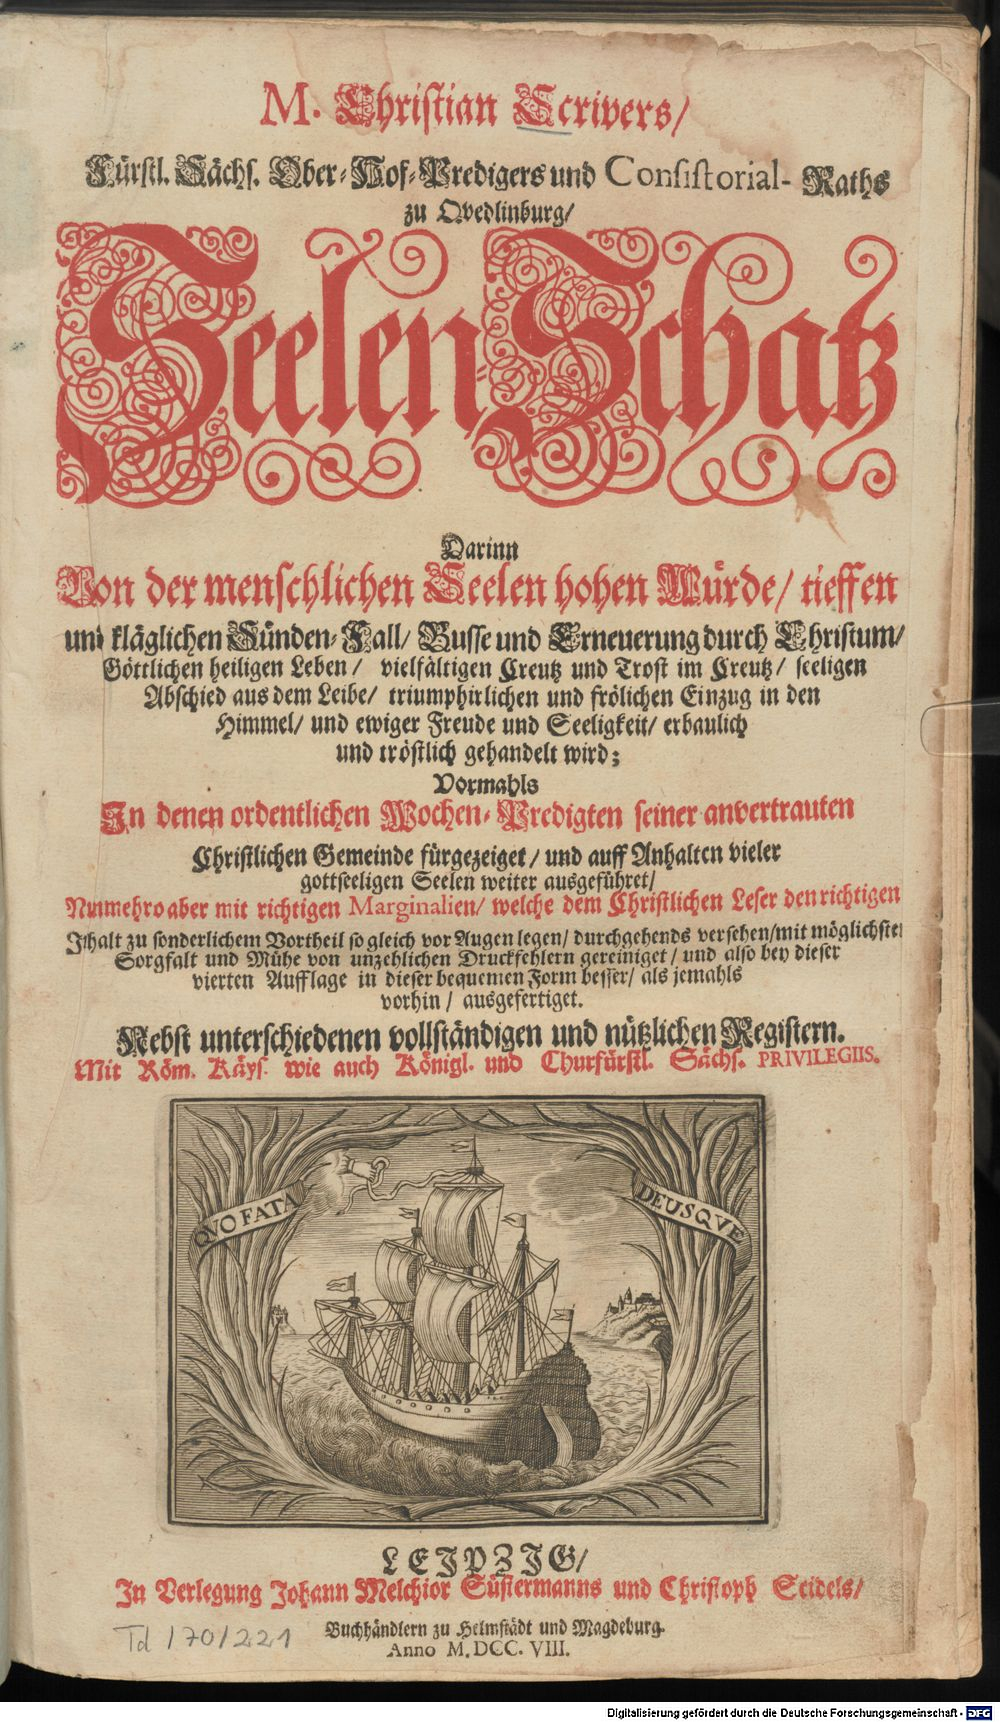 M. Christian Scrivers/
Fürstl. Sächs. Ober-Hof-Predigers und Consistorial-Raths
zu Qvedlinburg/
Seelen-Schatz
Darinn
Von der menschlichen Seelen hohen Würde/ tieffen
und kläglichen Sünden-Fall/ Busse und Erneuerung durch Christum/
Göttlichen heiligen Leben/ vielfältigen Creutz und Trost im Creutz/ seeligen
Abschied aus dem Leibe/ triumphirlichen und frölichen Einzug in den
Himmel/ und ewiger Freude und Seeligkeit/ erbaulich
und tröstlich gehandelt wird;
Vormahls
In denen ordentlichen Wochen-Predigten seiner anvertrauten
Christlichen Gemeinde fürgezeiget/ und auff Anhalten vieler
gottseeligen Seelen weiter ausgeführet/
Nunmehro aber mit richtigen Marginalien/ welche dem Christlichen Leser den richtigen
Inhalt zu sonderlichem Vortheil so gleich vor Augen legen/ durchgehends versehen/ mit möglichster
Sorgfalt und Mühe von unzehlichen Druckfehlern gereiniget/ und also bey dieser
vierten Aufflage in dieser bequemen Form besser/ als jemahls
vorhin/ ausgefertiget.
Nebst unterschiedenen vollständigen und nützlichen Registern.
Mit Röm. Käys. wie auch Königl. und Churfürstl. Sächs. PRIVILEGIIS.
QVO FATA DEUSQVE
LEIPZIG/
In Verlegung Johann Melchior Süstermanns und Christoph Seidels/
Buchhändlern zu Helmstädt und Magdeburg.
Anno M. DCC. VIII.
Td 170/221
Digitalisierung gefördert durch die Deutsche Forschungsgemeinschaft - DFG